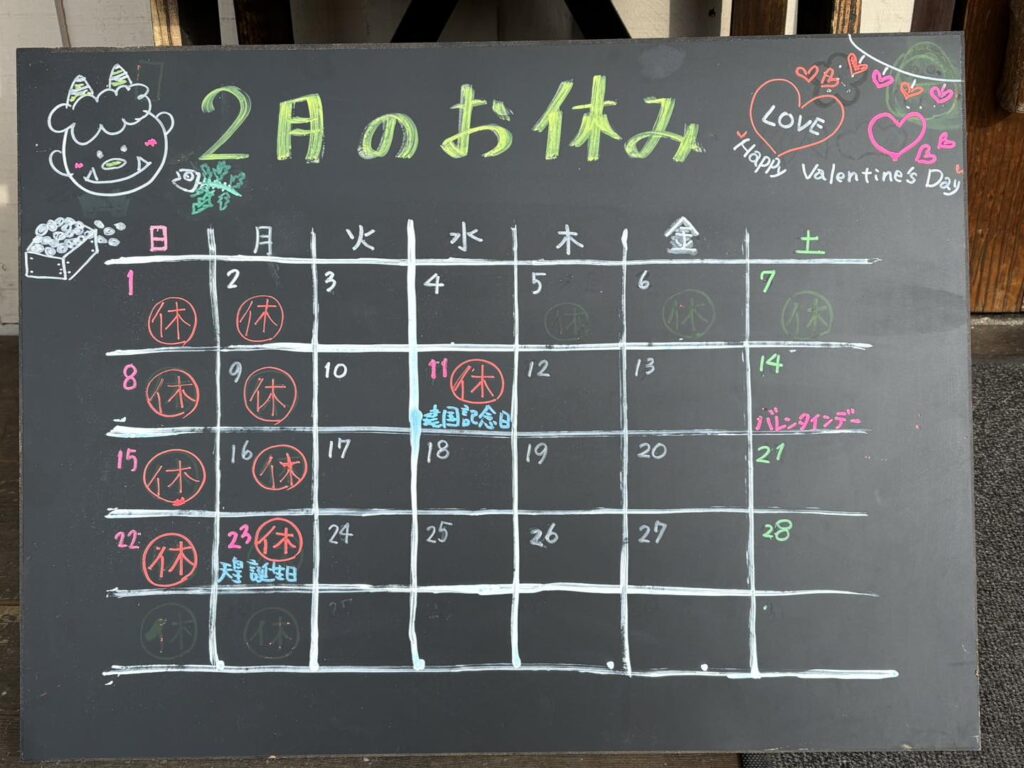 2月のお休み
LOVE
Happy Valentine's Day
日 月 火 水 木 金 土
1 2 3 4 5 6 7
休 休 休 休 休
8 9 10 11 12 13 14
休 休 休
建国記念日 バレンタインデー
15 16 17 18 19 20 21
休 休
22 23 24 25 26 27 28
休 休
天皇誕生日
休 休